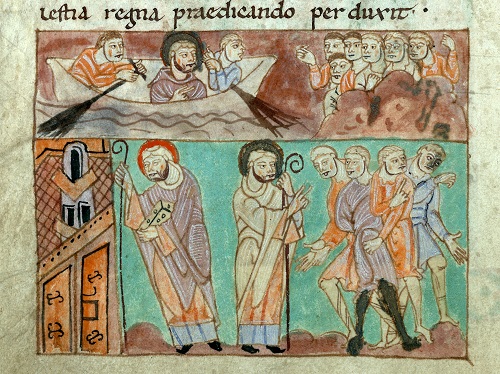 lestia regna praedicando perduxit ·